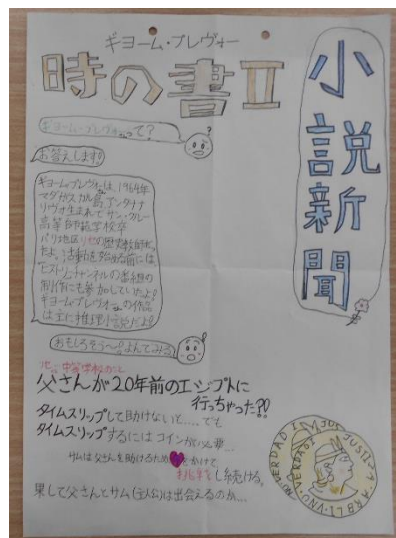 小説新聞
ギヨーム・プレヴォー
時の書Ⅱ
ギヨーム・プレヴォーって?
お答えします!
ギヨーム・プレヴォーは、1964年
マダガスカル島、アンタナ
リヴォ生まれでサン・クルー
高等師範学校卒
パリ地区リセの歴史教師だっ
たよ。活動を始める前には
ヒストリーチャンネルの番組の
制作にも参加していたよ!
ギヨーム・プレヴォーの作品
は主に推理小説だよ!
おもしろそう〜!よんでみる
父さんが20年前のエジプトに
行っちゃった?!
タイムスリップして助けないと.... でも
タイムスリップするにはコインが必要...
サムは父さんを助けるため をかけて
挑戦をし続ける。
果して父さんとサム(主人公)は出会えるのか...